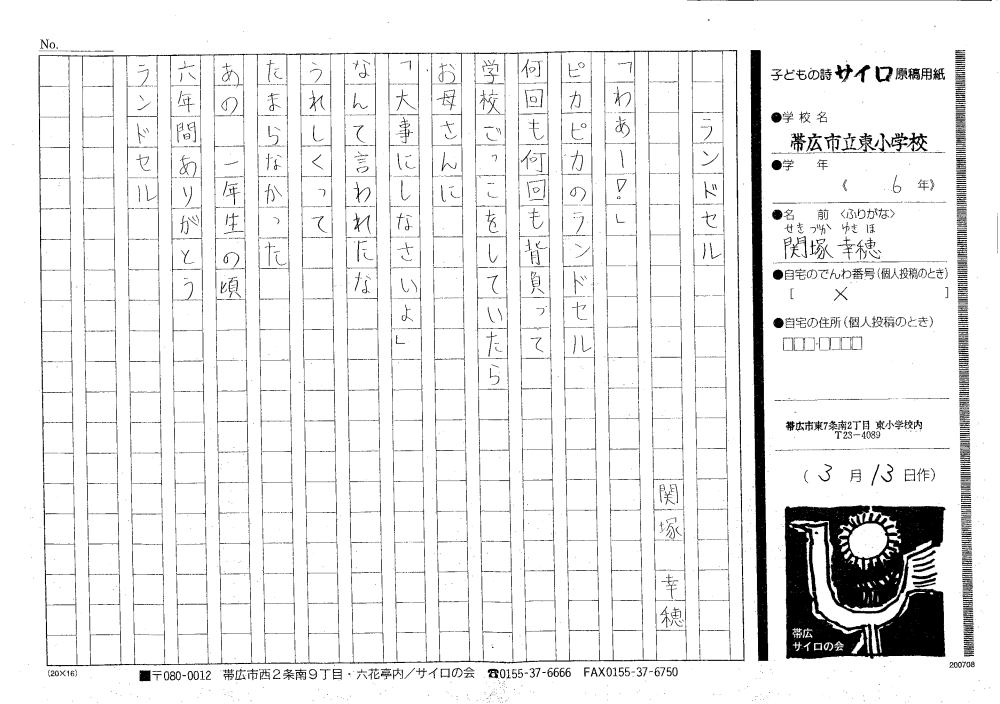 子どもの詩 サイロ 原稿用紙
●学校名
帯広市立東小学校
●学 年
《 6 年》
●名 前〈ふりがな〉
せきづか ゆきほ
関塚 幸穂
●自宅のでんわ番号(個人投稿のとき)
[ × ]
●自宅の住所(個人投稿のとき)
□□□-□□□□
帯広市東7条南2丁目 東小学校内
T23-4089
( 3 月 13 日作)
帯広
サイロの会
200708
No.
ランドセル
関塚 幸穂
「わあー!」
ピカピカのランドセル
何回も何回も背負って
学校ごっこをしていたら
お母さんに
「大事にしなさいよ」
なんて言われたな
うれしくって
たまらなかった
あの 一年生の頃
六年間ありがとう
ランドセル
(20×16)
■〒080-0012 帯広市西2条南9丁目・六花亭内/サイロの会 ☎0155-37-6666 FAX0155-37-6750